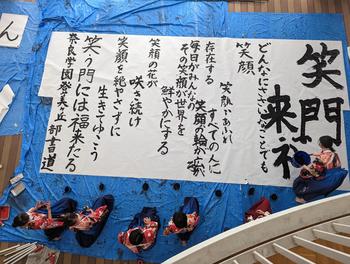 笑門
来福
どんなにささいなことでも
笑顔
笑顔あふれ
すべての人に
存在する
笑顔の輪が広が
毎日がみんなの
笑顔が世界を
鮮やかにする
笑顔の花が
咲き続け
笑顔を絶やさずに
生きてゆこう
笑う門には福来たる
奈良学園登美ヶ丘書道部
ん